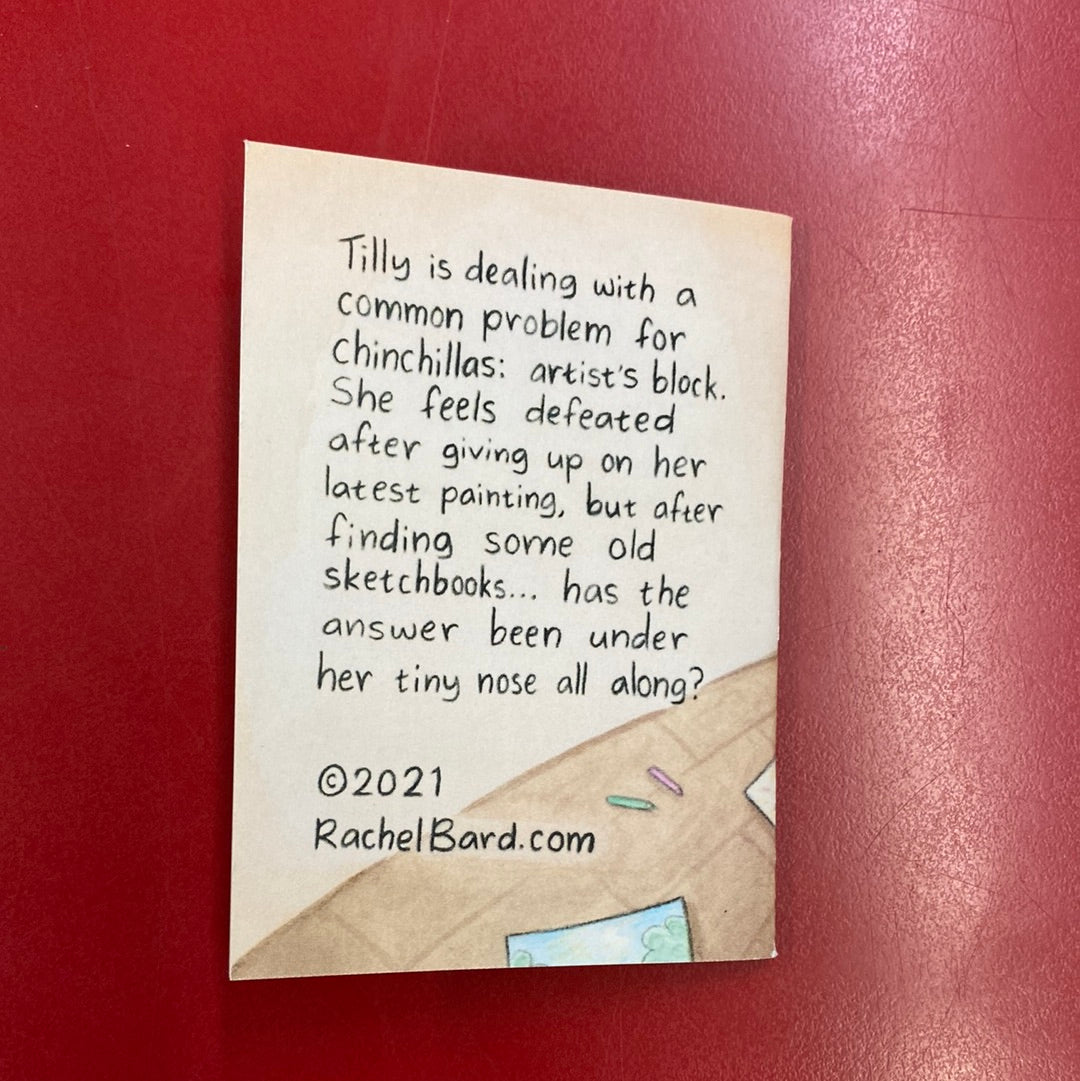 Tilly is dealing with a
common problem for
chinchillas: artist's block.
She feels defeated
after giving up on her
latest painting, but after
finding some old
sketchbooks... has the
answer been under
her tiny nose all along?
©2021
RachelBard.com